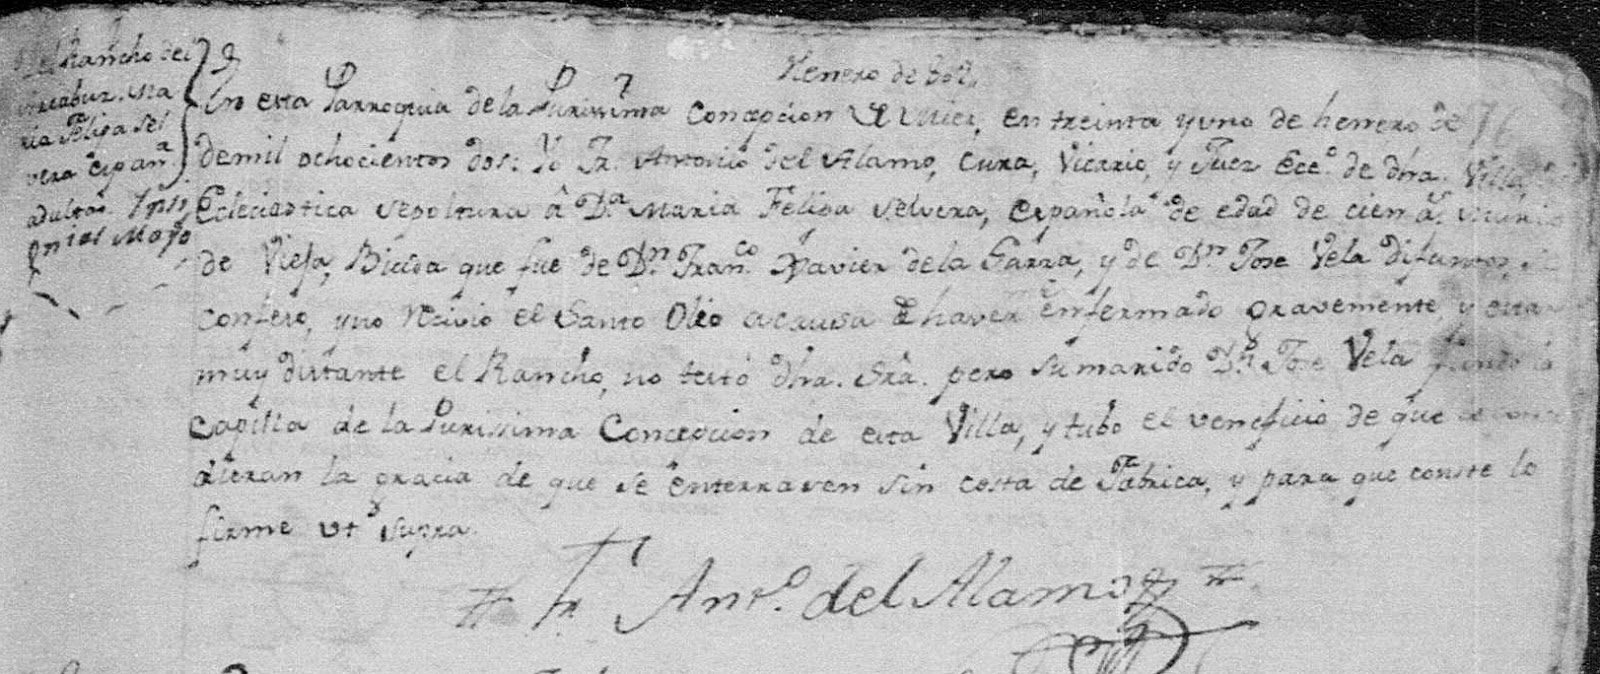 Del Rancho del
Ma
ria Felipa Sel
vera espanª
adulta.
Henero de 802,,
En esta Parroquia de la Purissima Concepcion de Mier, en treinta y uno de henero de
de mil ochocientos dos: Yo Fr. Antonio del Alamo, Cura, Vicario, y Juez Ecc.º de dha. Villa
Ecleciastica sepoltura â D.ª Maria Felipa Selvera, española de edad de cien as. murio
de Vieja, Biuda que fue de D.n Fran.co Xavier de la Garza, y de D.n Jose Vela difuntos, se
confeso, y no recivio el Santo Oleo a causa de haver enfermado gravemente, y estar
muy distante el Rancho, no testó dha. Sra. pero su marido D.n Jose Vela fundo la
Capilla de la Purissima Concepcion de esta Villa, y tubo el veneficio de que
dieran la gracia de que se enterraven sin costa de Fabrica, y para que conste lo
firme ut supra.
Fr. Ant.º del Alamo